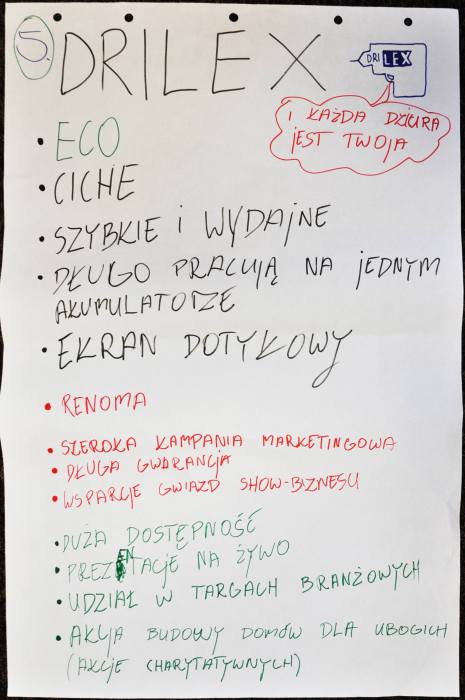 5. DRILEX
DRILEX
I KAŻDA DZIURA
JEST TWOJA
• ECO
• CICHE
• SZYBKIE I WYDAJNE
• DŁUGO PRACUJĄ NA JEDNYM
AKUMULATORZE
• EKRAN DOTYKOWY
• RENOMA
• SZEROKA KAMPANIA MARKETINGOWA
• DŁUGA GWARANCJA
• WSPARCIE GWIAZD SHOW-BIZNESU
• DUŻA DOSTĘPNOŚĆ
• PREZENTACJE NA ŻYWO
• UDZIAŁ W TARGACH BRANŻOWYCH
• AKCJA BUDOWY DOMÓW DLA UBOGICH
(AKCJE CHARYTATYWNYCH)